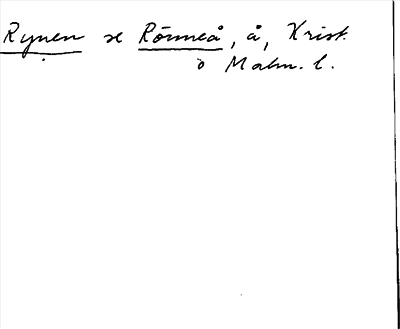 Rynen se Rönneå, å, Krist.
o Malm. l.